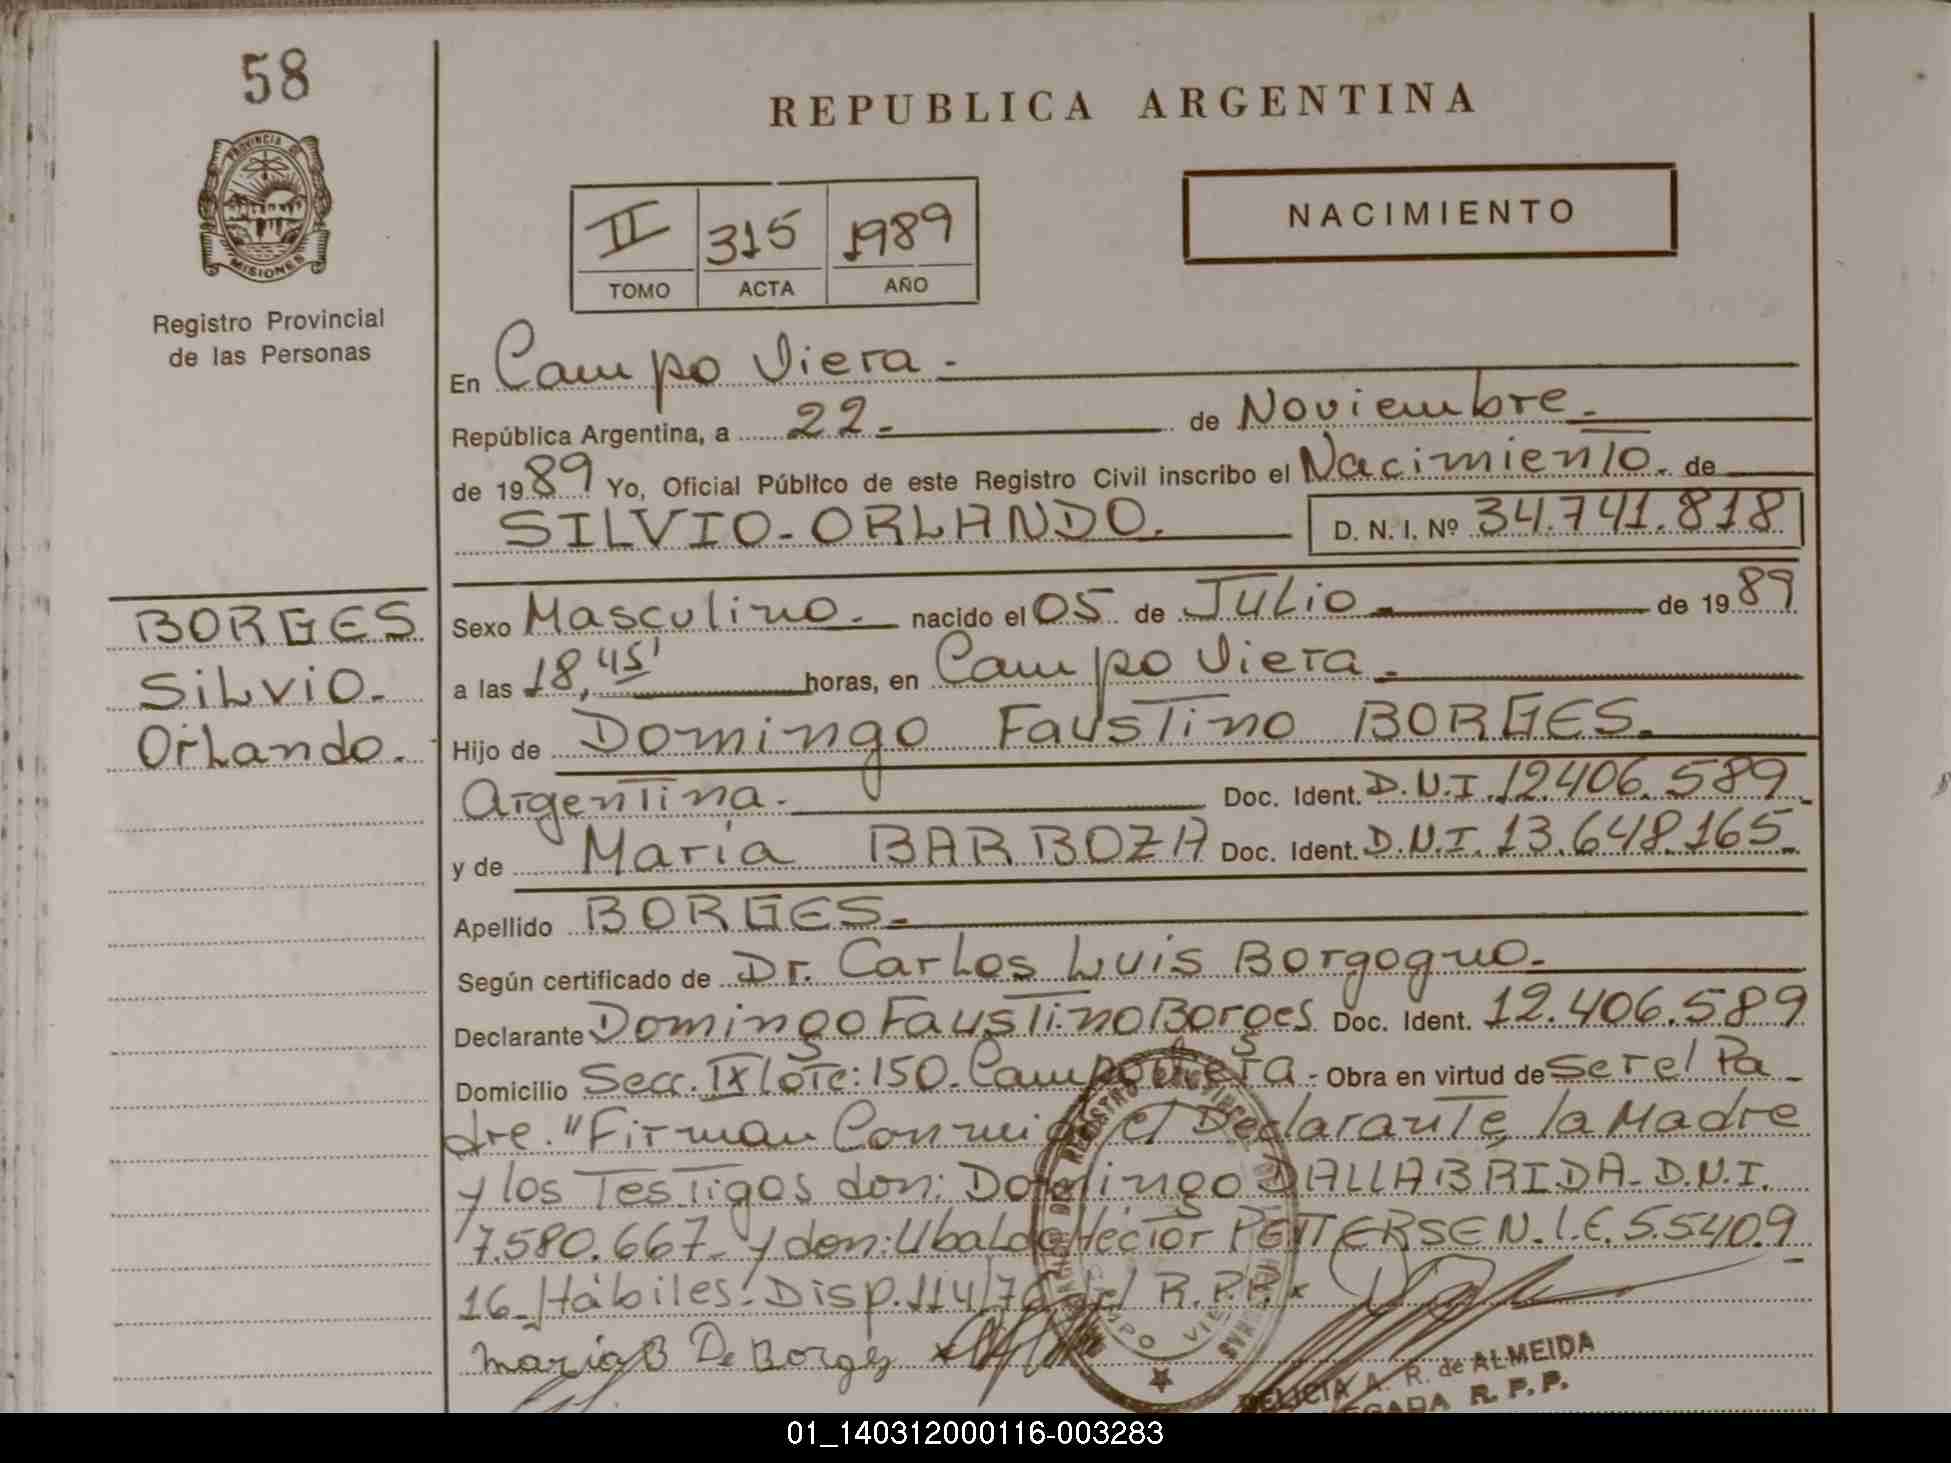 58
PROVINCIA DE
MISIONES
Registro Provincial
de las Personas
REPUBLICA ARGENTINA
II 315 1989
TOMO ACTA AÑO
NACIMIENTO
En Campo Viera.-
República Argentina, a 22.- de Noviembre.-
de 1989 Yo, Oficial Público de este Registro Civil inscribo el Nacimiento. de
SILVIO-ORLANDO. D. N. I. Nº 34.741.818
BORGES
Silvio.
Orlando.
Sexo Masculino.- nacido el 05 de Julio.- de 1989
a las 18,45' horas, en Campo Viera.-
Hijo de Domingo Faustino BORGES.
Argentina.- Doc. Ident. D.N.I. 12.406.589
y de Maria BARBOZA Doc. Ident. D.N.I. 13.648.165.-
Apellido BORGES.-
Según certificado de Dr. Carlos Luis Borgogno.-
Declarante Domingo Faustino Borges Doc. Ident. 12.406.589
Domicilio Secc. IX lote: 150. Campo Viera - Obra en virtud de ser el Pa-
dre. "Firman Conmigo el Declarante, la Madre
y los Testigos don: Domingo DALLABRIDA- D.N.I.
7.580.667.- y don: Ubaldo Hector PETTERSEN. L.E. 5.5409
16.- Hábiles: Disp. 114/76 del R.P.P.
Maria B De Borges
CAMPO VIERA
DELICIA A. R. de ALMEIDA
R. P. P.
01_140312000116-003283